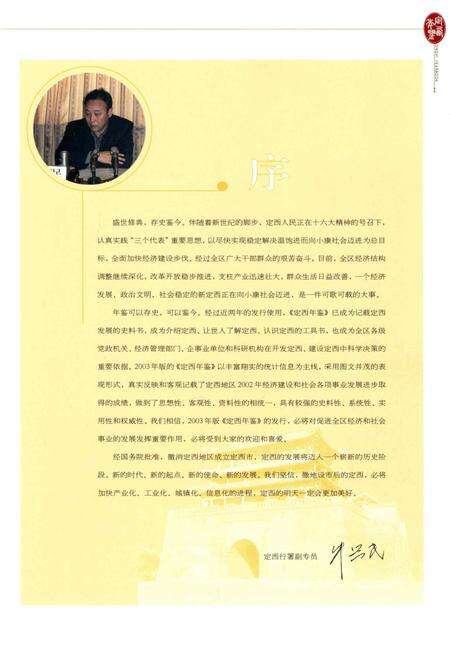 序
盛世修典，存史鉴今。伴随着新世纪的脚步，定西人民正在十六大精神的号召下，
认真实践“三个代表”重要思想，以尽快实现稳定解决温饱进而向小康社会迈进为总目
标，全面加快经济建设步伐。经过全区广大干部群众的艰苦奋斗，目前，全区经济结构
调整继续深化，改革开放稳步推进，支柱产业迅速壮大，群众生活日益改善，一个经济
发展、政治文明、社会稳定的新定西正在向小康社会迈进，是一件可歌可载的大事。
年鉴可以存史，可以鉴今。经过近两年的发行使用，《定西年鉴》已成为记载定西
发展的史料书，成为介绍定西、让世人了解定西、认识定西的工具书，也成为全区各级
党政机关、经济管理部门、企事业单位和科研机构在开发定西、建设定西中科学决策的
重要依据。2003年版的《定西年鉴》以丰富翔实的统计信息为主线，采用图文并茂的表
现形式，真实反映和客观记载了定西地区2002年经济建设和社会各项事业发展进步取
得的成绩，做到了思想性、客观性、资料性的相统一，具有较强的史料性、系统性、实
用性和权威性。我们相信，2003年版《定西年鉴》的发行，必将对促进全区经济和社会
事业的发展发挥重要作用，必将受到大家的欢迎和喜爱。
经国务院批准，撤消定西地区成立定西市，定西的发展将迈入一个崭新的历史阶
段。新的时代、新的起点、新的使命、新的发展。我们坚信，撤地设市后的定西，必将
加快产业化、工业化、城镇化、信息化的进程，定西的明天一定会更加美好。
定西行署副专员